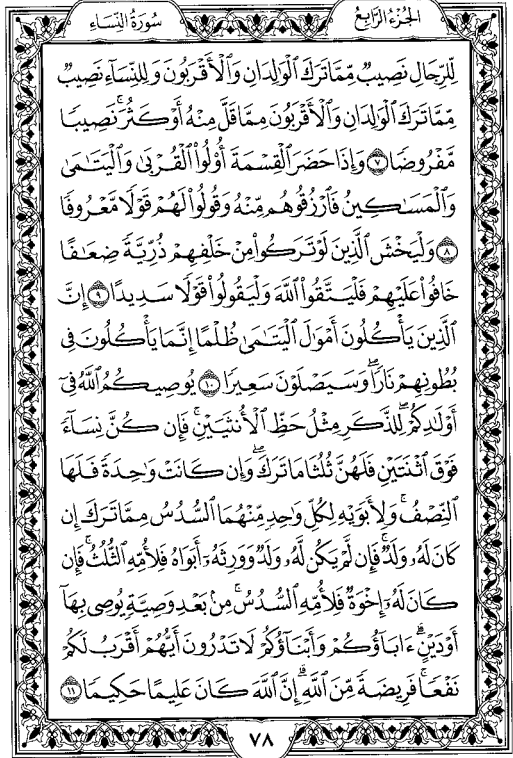 سُورَةُ النِّسَاءِ
الجُزْءُ الرَّابِعُ
لِّلرِّجَالِ نَصِيبٌ مِّمَّا تَرَكَ ٱلْوَٰلِدَانِ وَٱلْأَقْرَبُونَ وَلِلنِّسَآءِ نَصِيبٌ
مِّمَّا تَرَكَ ٱلْوَٰلِدَانِ وَٱلْأَقْرَبُونَ مِمَّا قَلَّ مِنْهُ أَوْ كَثُرَ ۚ نَصِيبًا
مَّفْرُوضًا ٧ وَإِذَا حَضَرَ ٱلْقِسْمَةَ أُو۟لُوا۟ ٱلْقُرْبَىٰ وَٱلْيَتَٰمَىٰ
وَٱلْمَسَٰكِينُ فَٱرْزُقُوهُم مِّنْهُ وَقُولُوا۟ لَهُمْ قَوْلًا مَّعْرُوفًا
٨ وَلْيَخْشَ ٱلَّذِينَ لَوْ تَرَكُوا۟ مِنْ خَلْفِهِمْ ذُرِّيَّةً ضِعَٰفًا
خَافُوا۟ عَلَيْهِمْ فَلْيَتَّقُوا۟ ٱللَّهَ وَلْيَقُولُوا۟ قَوْلًا سَدِيدًا ٩ إِنَّ
ٱلَّذِينَ يَأْكُلُونَ أَمْوَٰلَ ٱلْيَتَٰمَىٰ ظُلْمًا إِنَّمَا يَأْكُلُونَ فِى
بُطُونِهِمْ نَارًا ۖ وَسَيَصْلَوْنَ سَعِيرًا ١٠ يُوصِيكُمُ ٱللَّهُ فِىٓ
أَوْلَٰدِكُمْ ۖ لِلذَّكَرِ مِثْلُ حَظِّ ٱلْأُنثَيَيْنِ ۚ فَإِن كُنَّ نِسَآءً
فَوْقَ ٱثْنَتَيْنِ فَلَهُنَّ ثُلُثَا مَا تَرَكَ ۖ وَإِن كَانَتْ وَٰحِدَةً فَلَهَا
ٱلنِّصْفُ ۚ وَلِأَبَوَيْهِ لِكُلِّ وَٰحِدٍ مِّنْهُمَا ٱلسُّدُسُ مِمَّا تَرَكَ إِن
كَانَ لَهُۥ وَلَدٌ ۚ فَإِن لَّمْ يَكُن لَّهُۥ وَلَدٌ وَوَرِثَهُۥٓ أَبَوَاهُ فَلِأُمِّهِ ٱلثُّلُثُ ۚ فَإِن
كَانَ لَهُۥٓ إِخْوَةٌ فَلِأُمِّهِ ٱلسُّدُسُ ۚ مِنۢ بَعْدِ وَصِيَّةٍ يُوصِى بِهَآ
أَوْ دَيْنٍ ۗ ءَابَآؤُكُمْ وَأَبْنَآؤُكُمْ لَا تَدْرُونَ أَيُّهُمْ أَقْرَبُ لَكُمْ
نَفْعًا ۚ فَرِيضَةً مِّنَ ٱللَّهِ ۗ إِنَّ ٱللَّهَ كَانَ عَلِيمًا حَكِيمًا ١١
٧٨